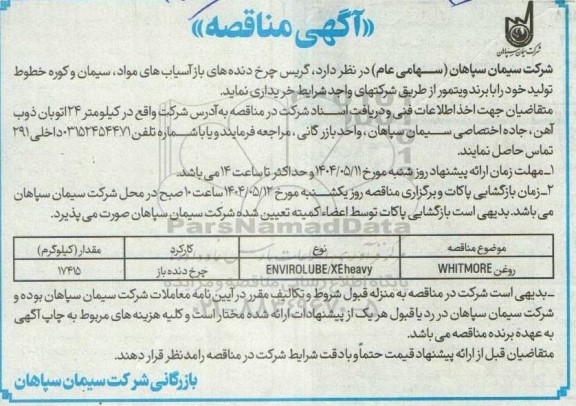 «آگهی مناقصه»
شرکت سیمان سپاهان
شرکت سیمان سپاهان (سهامی عام) در نظر دارد، گریس چرخ دنده‌های باز آسیاب های مواد، سیمان و کوره خطوط
تولید خود را با برند ویتمور از طریق شرکتهای واجد شرایط خریداری نماید.
متقاضیان جهت اخذ اطلاعات فنی و دریافت اسناد شرکت در مناقصه به آدرس شرکت واقع در کیلومتر ۲۴ اتوبان ذوب
آهن، جاده اختصاصی سیمان سپاهان، واحد بازرگانی، مراجعه فرمایند و یا با شماره تلفن ۰۳۱۵۲۴۵۴۴۷۱ داخلی ۲۹۱
تماس حاصل نمایند.
۱_مهلت زمان ارائه پیشنهاد روز شنبه مورخ ۱۴۰۴/۰۵/۱۱ و حداکثر تا ساعت ۱۴ می باشد.
۲_زمان بازگشایی پاکات و برگزاری مناقصه روز یکشنبه مورخ ۱۴۰۴/۰۵/۱۲ ساعت ۱۰ صبح در محل شرکت سیمان سپاهان
می باشد. بدیهی است بازگشایی پاکات توسط اعضاء کمیته تعیین شده شرکت سیمان سپاهان صورت می پذیرد.
ParsNamadData
موضوع مناقصه نوع کارکرد مقدار (کیلوگرم)
روغن WHITMORE ENVIROLUBE/XE heavy چرخ دنده باز ۱۷۴۱۵
_بدیهی است شرکت در مناقصه به منزله قبول شروط و تکالیف مقرر در آیین نامه معاملات شرکت سیمان سپاهان بوده و
شرکت سیمان سپاهان در رد یا قبول هر یک از پیشنهادات ارائه شده مختار است و کلیه هزینه های مربوط به چاپ آگهی
به عهده برنده مناقصه می باشد.
متقاضیان قبل از ارائه پیشنهاد قیمت حتماً و با دقت شرایط شرکت در مناقصه را مدنظر قرار دهند.
بازرگانی شرکت سیمان سپاهان